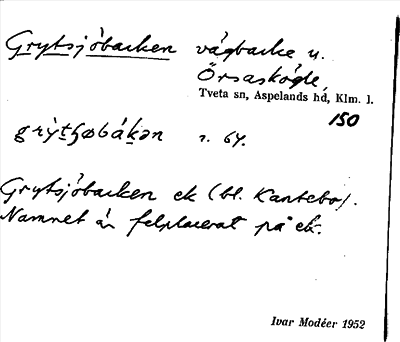 Grytsjöbacken vägbacke u.
Örsaskögle,
Tveta sn, Aspelands hd, Klm. l.
150
r. 64.
Grytsjöbacken ek (bl. Kantebo).
Namnet är felplacerat på ek.
Ivar Modéer 1952